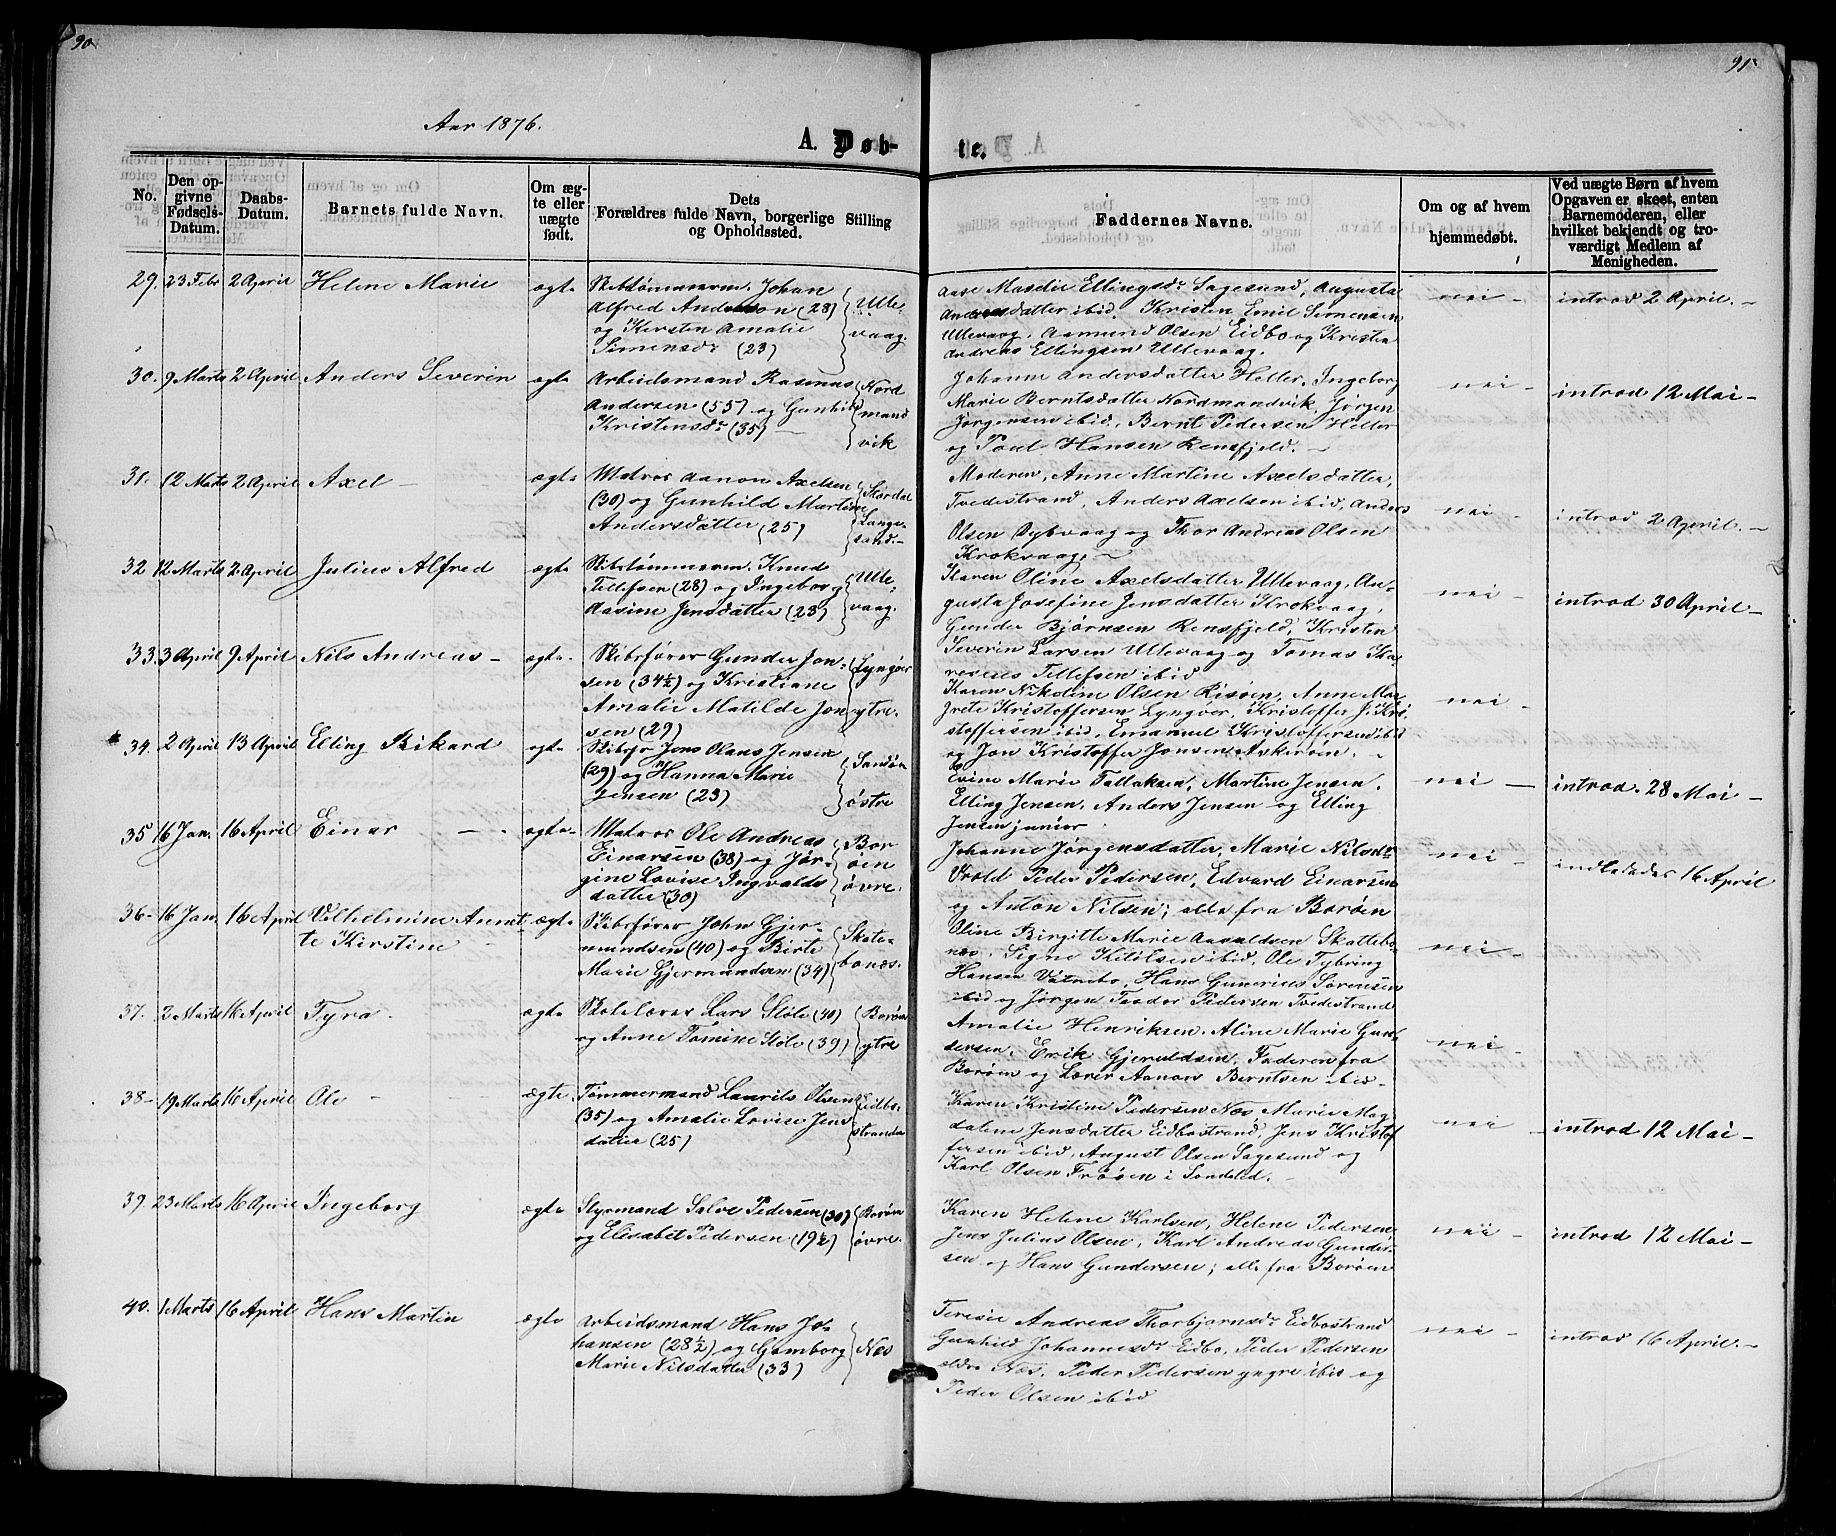 90
91
Aar 1876.
A. Døb-
te.
No.
Den op-
givne
Fødsels-
Datum.
Daabs-
Datum.
Barnets fulde Navn.
Om æg-
te eller
uægte
født.
Dets
Forældres fulde Navn, borgerlige Stilling
og Opholdssted.
Faddernes Navne.
Om og af hvem
hjemmedøbt.
Ved uægte Børn af hvem
Opgaven er skeet, enten
Barnemoderen, eller
hvilket bekjendt og tro-
værdigt Medlem af
Menigheden.
29. 23 Feb 2 April Helene Marie ægte Skibstømmerm. Johan
Alfred Anderson (28)
og Kersten Amalie
Simensdr (23)
Ulle-
vaag.
Aase Masdie Ellingsdr Sagesund, Augusta
Andersdatter ibid. Kristen Emil Simensen
Ullevaag, Aasmund Olsen Eidbo og Kristen
Andreas Ellingsen Ullevaag.
nei - introd 2 April. -
30. 9 Marts 2 April Anders Severin ægte Arbeidsmand Rasmus
Andersen (55) og Gunhild
Kristensdr (35) -
Nord
mand
vik
Johanne Andersdatter Heller, Ingeborg
Marie Berntsdatter Nordmandvik, Jørgen
Jørgensen ibid. Bernt Pedersen Heller
og Poul Hansen Rensfjeld. -
nei - introd 12 Mai -
31. 12 Marts 2 April Axel - ægte Matros Aanon Axelsen
(30) og Gunhild Martine
Andersdatter (25)
Størdal
Lange-
sand.-
Moderen, Anne Martine Axelsdatter,
Tvedestrand, Anders Axelsen ibid, Anders
Olsen Dybvaag og Thor Andreas Olsen
Krokvaag. -
nei - introd 2 April. -
32. 12 Marts 2 April Julius Alfred ægte Skibstømmerm. Knud
Tellefsen (28) og Ingeborg
Aasine Jensdatter (23)
Ulle-
vaag.
Karen Oline Axelsdatter Ullevaag, Au-
gusta Josefine Jensdatter Krokvaag,
Gunder Bjørnsen Rensfjeld, Kristen
Severin Larsen Ullevaag og Tomas
Tellefsen ibid
nei - introd 30 April -
33. 3 April 9 April Nils Andreas - ægte Skibsfører Gunder Jon-
sen (34½) og Kristiane
Amalie Matilde Jon
sen (29)
Lyngøer
ytre.
Karen Nikoline Olsen Risøen, Anne Mar-
grete Kristoffersen Lyngøer, Kristoffer J. Kri-
stoffersen ibid, Emanuel Kristoffersen ibid
og Jon Kristoffer Jonsen Askerøen. -
nei -
34. 2 April 13 April Elling Rikard ægte Skibsfør Jens Olaus Jensen
(29) og Hanna Marie
Jensen (23)
Sandøen
østre
Evine Marie Tallaksen, Martine Jensen,
Elling Jensen, Anders Jensen og Elling
Jensen junior
nei - introd. 28 Mai -
35 16 Jan. 16 April Einar - - ægte- Matros Ole Andreas
Einarsen (38) og Jør-
gine Lovise Ingvalds
datter (30)
Bor
øen
øvre.
Johanne Jørgensdatter, Marie Nilsdr
Vrold Peder Pedersen, Edvard Einarsen
og Anton Nilsen; alle fra Borøen
nei - indlededes 16 April
36- 16 Jan. 16 April Vilhelmine Annet
te Kirstine - ægte Skibsfører John Gjer-
mundsen (40) og Birte
Marie Gjermundsen (34)
Skate-
bonæs.
Oline Birgitte Marie Aasuldsen Skattebo-
næs. Signe Ketilsen ibid, Ole Tybring
Hansen Vatnebo, Hans Gunerius Sørensen
ibid og Jørgen Teodor Pedersen Tvedestrand
nei -
37. 2 Marts 16 April Tyra - ægte Skolelærer Lars Støle (40)
og Anne Tomine Støle (39)
Borøen
ytre
Amalie Henriksen. Aline Marie Gun-
dersen. Erik Gjeruldsen, Faderen fra
Borøen og Lærer Aanon Berntsen ibid-
nei -
38- 19 Marts 16 April Ole - - ægte. Tømmermand Laurits Olsen
(35) og Amalie Lovise Jens
datter (25)
Eidbo-
stranda
Karen Kristine Pedersen Næs, Marie Mag
dalene Jensdatter Eidbostrand, Jens Kristof
fersen ibid, August Olsen Sagesund og
Karl Olsen Frøsen i Søndeled. -
nei - introd 12 Mai -
39. 23 Marts 16 April Ingeborg ægte Styrmand Salve Pedersen (30)
og Elisabet Pedersen (19½)
Borøen
øvre.
Karen Helene Karlsen, Helene Pedersen,
Jens Julius Olsen, Karl Andreas Gunder-
sen og Hans Gundersen; alle fra Borøen
nei - introd 12 Mai -
40. 1 Marts 16 April Hans Martin ægte Arbeidsmand Hans Jo-
hansen (28½) og Gomborg
Marie Nilsdatter (33)
Næs
Teresie Andreas Thorbjørnsdr Eidbostrand
Gunhild Johannesdr Eidbo, Peder Pedersen
ældre Næs. Peder Pedersen yngre ibid og
Peder Olsen ibid
nei - introd 16 April. -